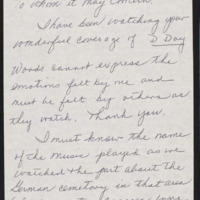 to whom it may concern.
I have been watching your
wonderful coverage of D Day
Words cannot express the
emotions felt by me and
must be felt by others as
they watch. Thank you.
I must know the name
of the music played as we
watched the part about the
German cemetery in that area